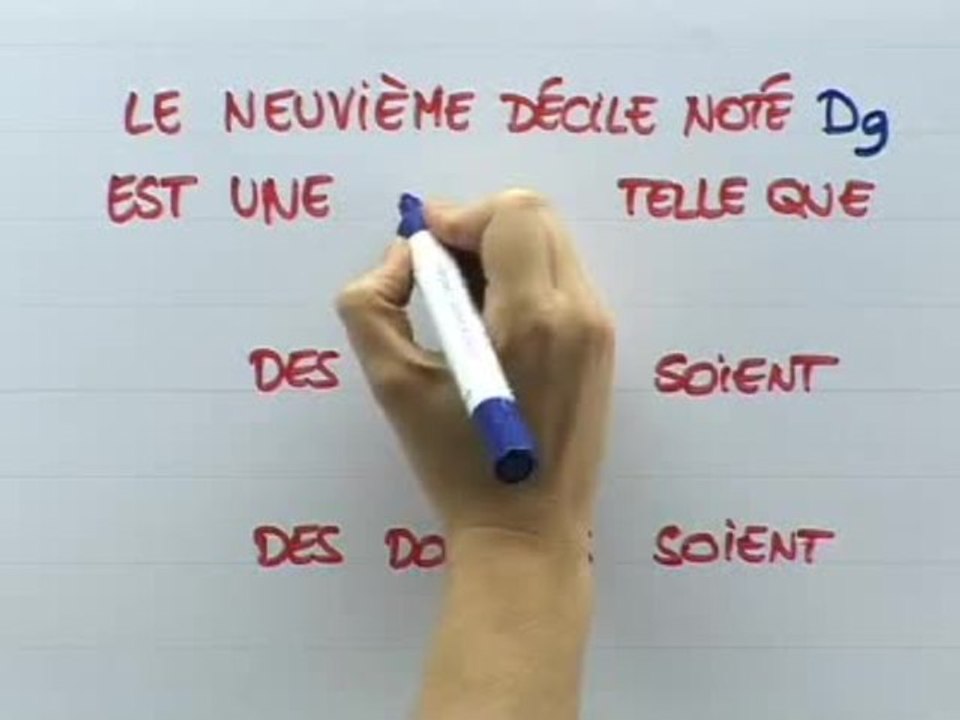 LE NEUVIÈME DÉCILE NOTÉ D9
EST UNE TELLE QUE
DES SOIENT
DES SOIENT